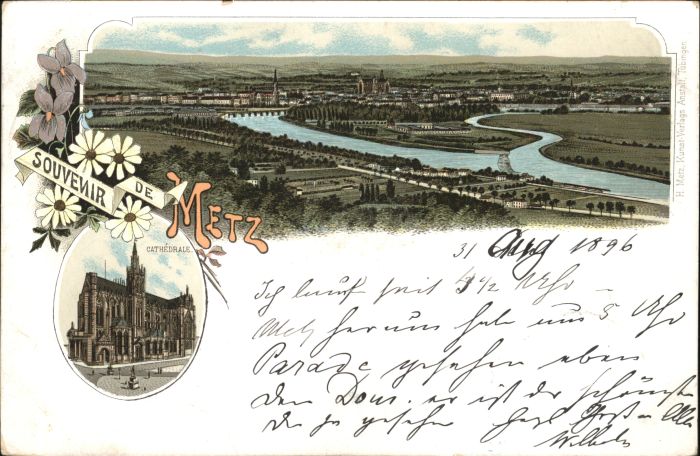 SOUVENIR DE
METZ
CATHÉDRALE.
H. Metz, Kunst-Verlags-Anstalt, Tübingen
31 Aug 1896
Ich lauf seit 5 1/2 Uhr
Metz herum habe um 8 Uhr
Parade gesehen eben
den Dom. er ist der schönste
den je gesehen herzl Gruß an Alle
Wilhelm